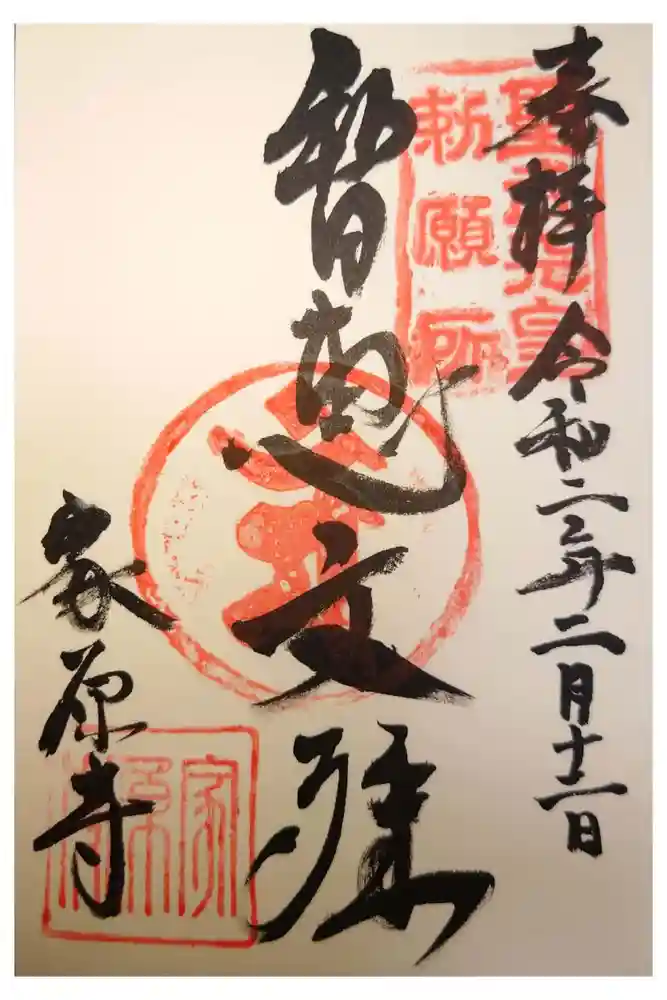 奉拝 令和二年二月十二日
聖武天皇
勅願所
智恵文殊
家原寺
家原寺